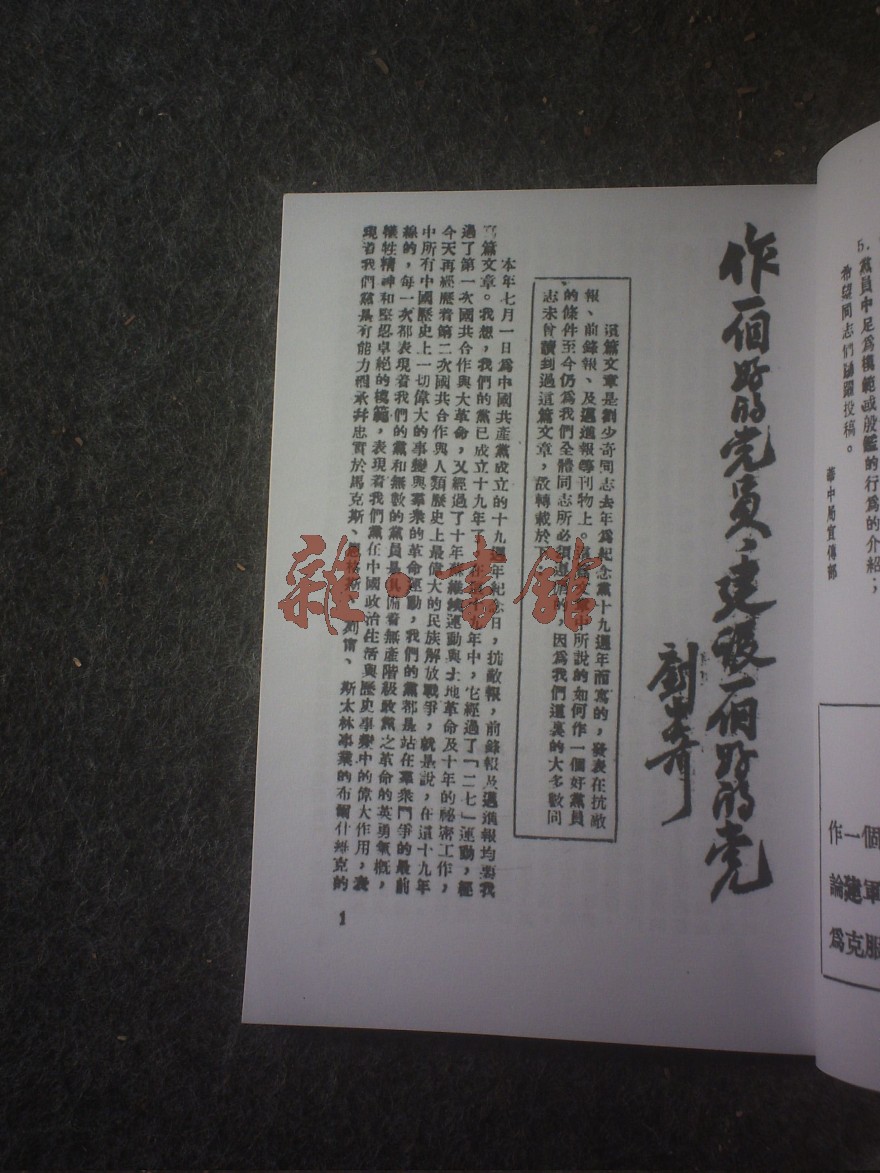 5. 黨員中足爲模範或殷鑑的行爲的介紹；
希望同志們踴躍投稿。
華中局宣傳部
作一個
論建軍
爲克服
作一個好的党員，建設一個好的党
劉少奇
這篇文章是劉少奇同志去年爲紀念黨十九週年而寫的，發表在抗敵
報、前鋒報、及邁進報等刊物上。文中所說的如何作一個好黨員
的條件至今仍爲我們全體同志所必須的，因爲我們這裏的大多數同
志未曾讀到過這篇文章，故轉載於下
本年七月一日爲中國共產黨成立的十九週年紀念日，抗敵報，前鋒報及邁進報均要我
寫篇文章。我想，我們的黨已成立十九年了。在這十九年中，它經過了「二七」運動，經
過了第一次國共合作與大革命，又經過了十年蘇維埃運動與土地革命及十年的祕密工作，
今天再經歷着第二次國共合作與人類歷史上最偉大的民族解放戰爭，就是說，在這十九年
中所有中國歷史上一切偉大的事變與羣衆的革命運動，我們的黨都是站在羣衆鬥爭的最前
線的，每一次都表現着我們的黨和無數的黨員是具備着無產階級政黨之革命的英勇氣概，
犧牲精神和堅忍卓絕的模範，表現着我們黨在中國政治生活與歷史事變中的偉大作用，表
現着我們黨是有能力繼承并忠實於馬克斯、恩格斯、列甯、斯太林事業的布爾什維克的
1
雜·書館